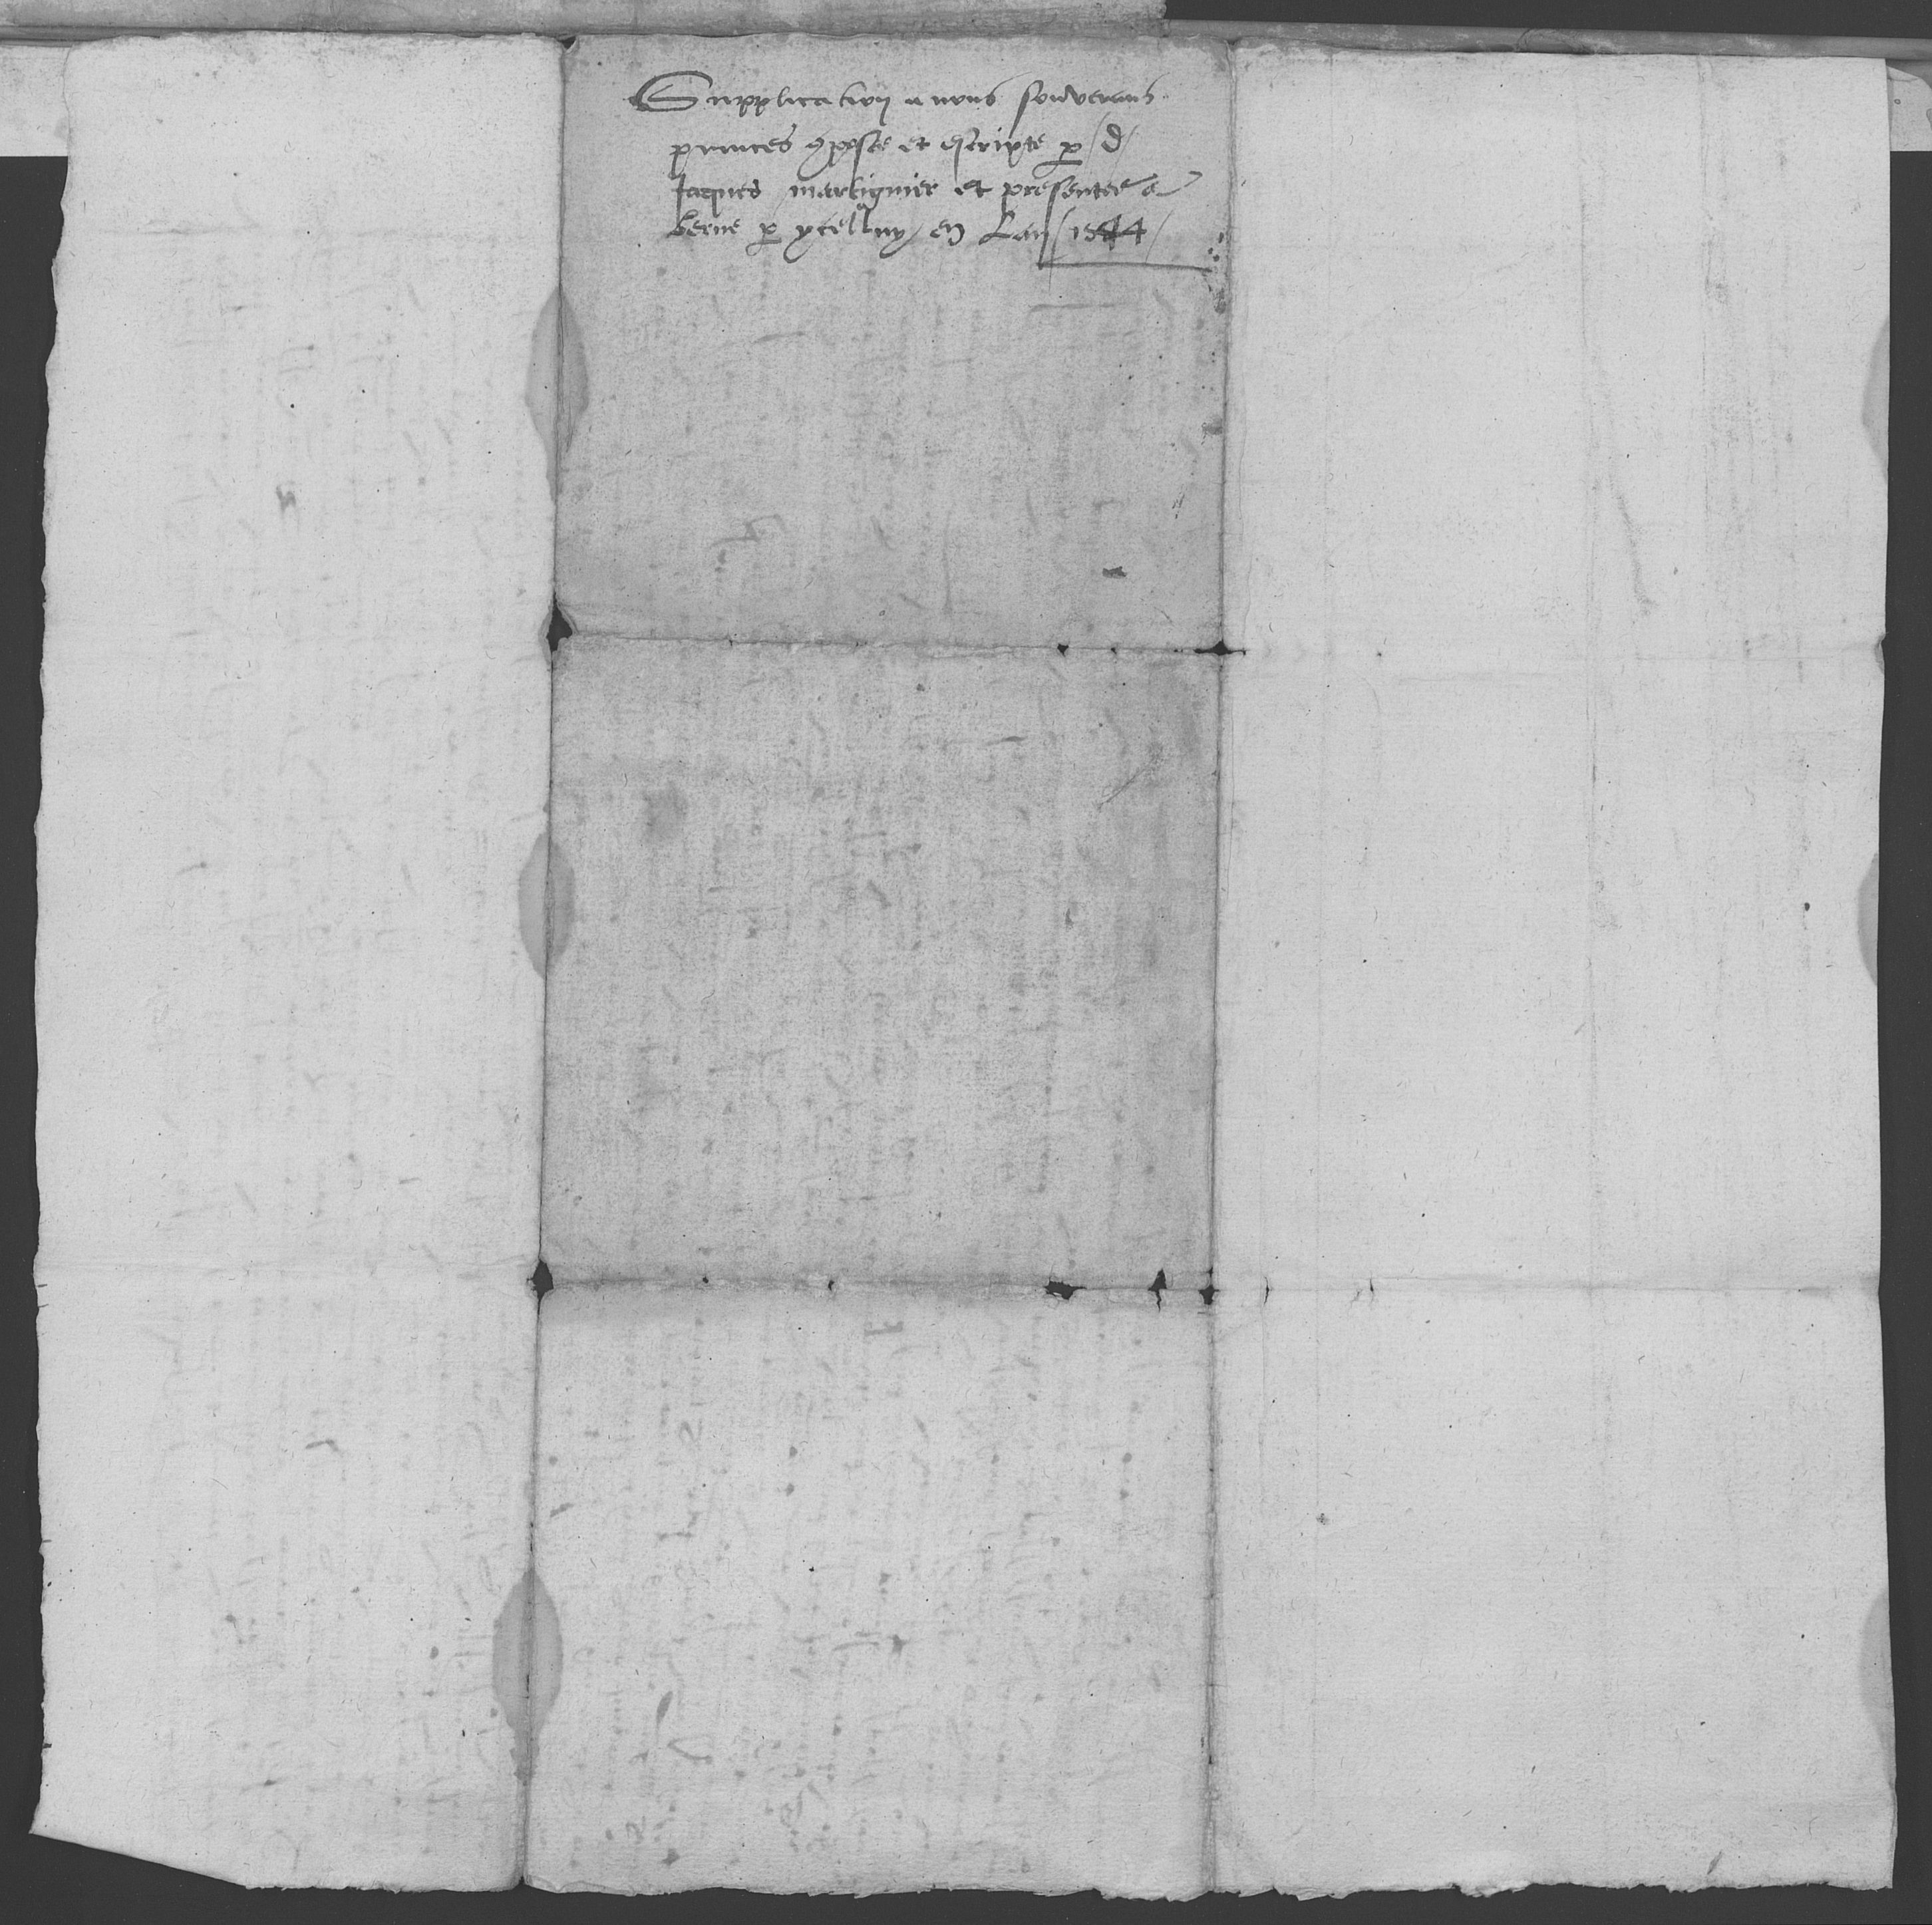 Supplication a nous souverains
princes 9posee et escripte p /d/
Jaques martignier et presentee a
berne p ycelluy / en Lan / 1544 /